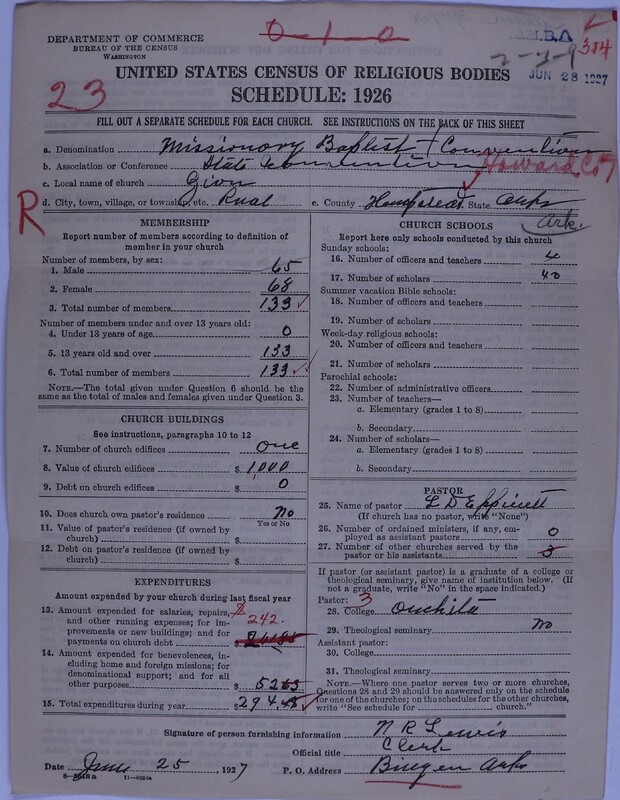 DEPARTMENT OF COMMERCE
BUREAU OF THE CENSUS
WASHINGTON
0 1 0
M.B.A
2-3-9 384
JUN 28 1927
23
UNITED STATES CENSUS OF RELIGIOUS BODIES
SCHEDULE: 1926
FILL OUT A SEPARATE SCHEDULE FOR EACH CHURCH. SEE INSTRUCTIONS ON THE BACK OF THIS SHEET
a. Denomination Missionary Baptist + Convention
b. Association or Conference State Convention Howard Co
c. Local name of church
R
d. City, town, village, or township, etc. Rual e. County Hempstead State Arks
Ark.
MEMBERSHIP
Report number of members according to definition of
member in your church
Number of members, by sex:
1. Male 65
2. Female 68
3. Total number of members 133
Number of members under and over 13 years old:
4. Under 13 years of age 0
5. 13 years old and over 133
6. Total number of members 133
NOTE.—The total given under Question 6 should be the
same as the total of males and females given under Question 3.
CHURCH BUILDINGS
See instructions, paragraphs 10 to 12
7. Number of church edifices one
8. Value of church edifices $ 1,000
9. Debt on church edifices $ 0
10. Does church own pastor's residence no
Yes or No
11. Value of pastor's residence (if owned by
church) $
12. Debt on pastor's residence (if owned by
church) $
EXPENDITURES
Amount expended by your church during last fiscal year
13. Amount expended for salaries, repairs,
and other running expenses; for im-
provements or new buildings; and for
payments on church debt $ 242.
14. Amount expended for benevolences, in-
cluding home and foreign missions; for
denominational support; and for all
other purposes $ 52
15. Total expenditures during year $ 294.
CHURCH SCHOOLS
Report here only schools conducted by this church
Sunday schools:
16. Number of officers and teachers 4
17. Number of scholars 40
Summer vacation Bible schools:
18. Number of officers and teachers
19. Number of scholars
Week-day religious schools:
20. Number of officers and teachers
21. Number of scholars
Parochial schools:
22. Number of administrative officers
23. Number of teachers—
a. Elementary (grades 1 to 8)
b. Secondary
24. Number of scholars—
a. Elementary (grades 1 to 8)
b. Secondary
PASTOR
25. Name of pastor L D Eppinett
(If church has no pastor, write "None")
26. Number of ordained ministers, if any, em-
ployed as assistant pastors 0
27. Number of other churches served by the
pastor or his assistants 3
If pastor (or assistant pastor) is a graduate of a college or
theological seminary, give name of institution below. (If
not a graduate, write "No" in the space indicated.)
Pastor: 3
28. College Ouchita
29. Theological seminary no
Assistant pastor:
30. College
31. Theological seminary
NOTE.—Where one pastor serves two or more churches,
Questions 28 and 29 should be answered only on the schedule
for one of the churches; on the schedules for the other churches,
write "See schedule for church."
Signature of person furnishing information N R Lewis
Official title Clerk
Date June 25, 1927 P. O. Address Bingen Arks
11-9054a